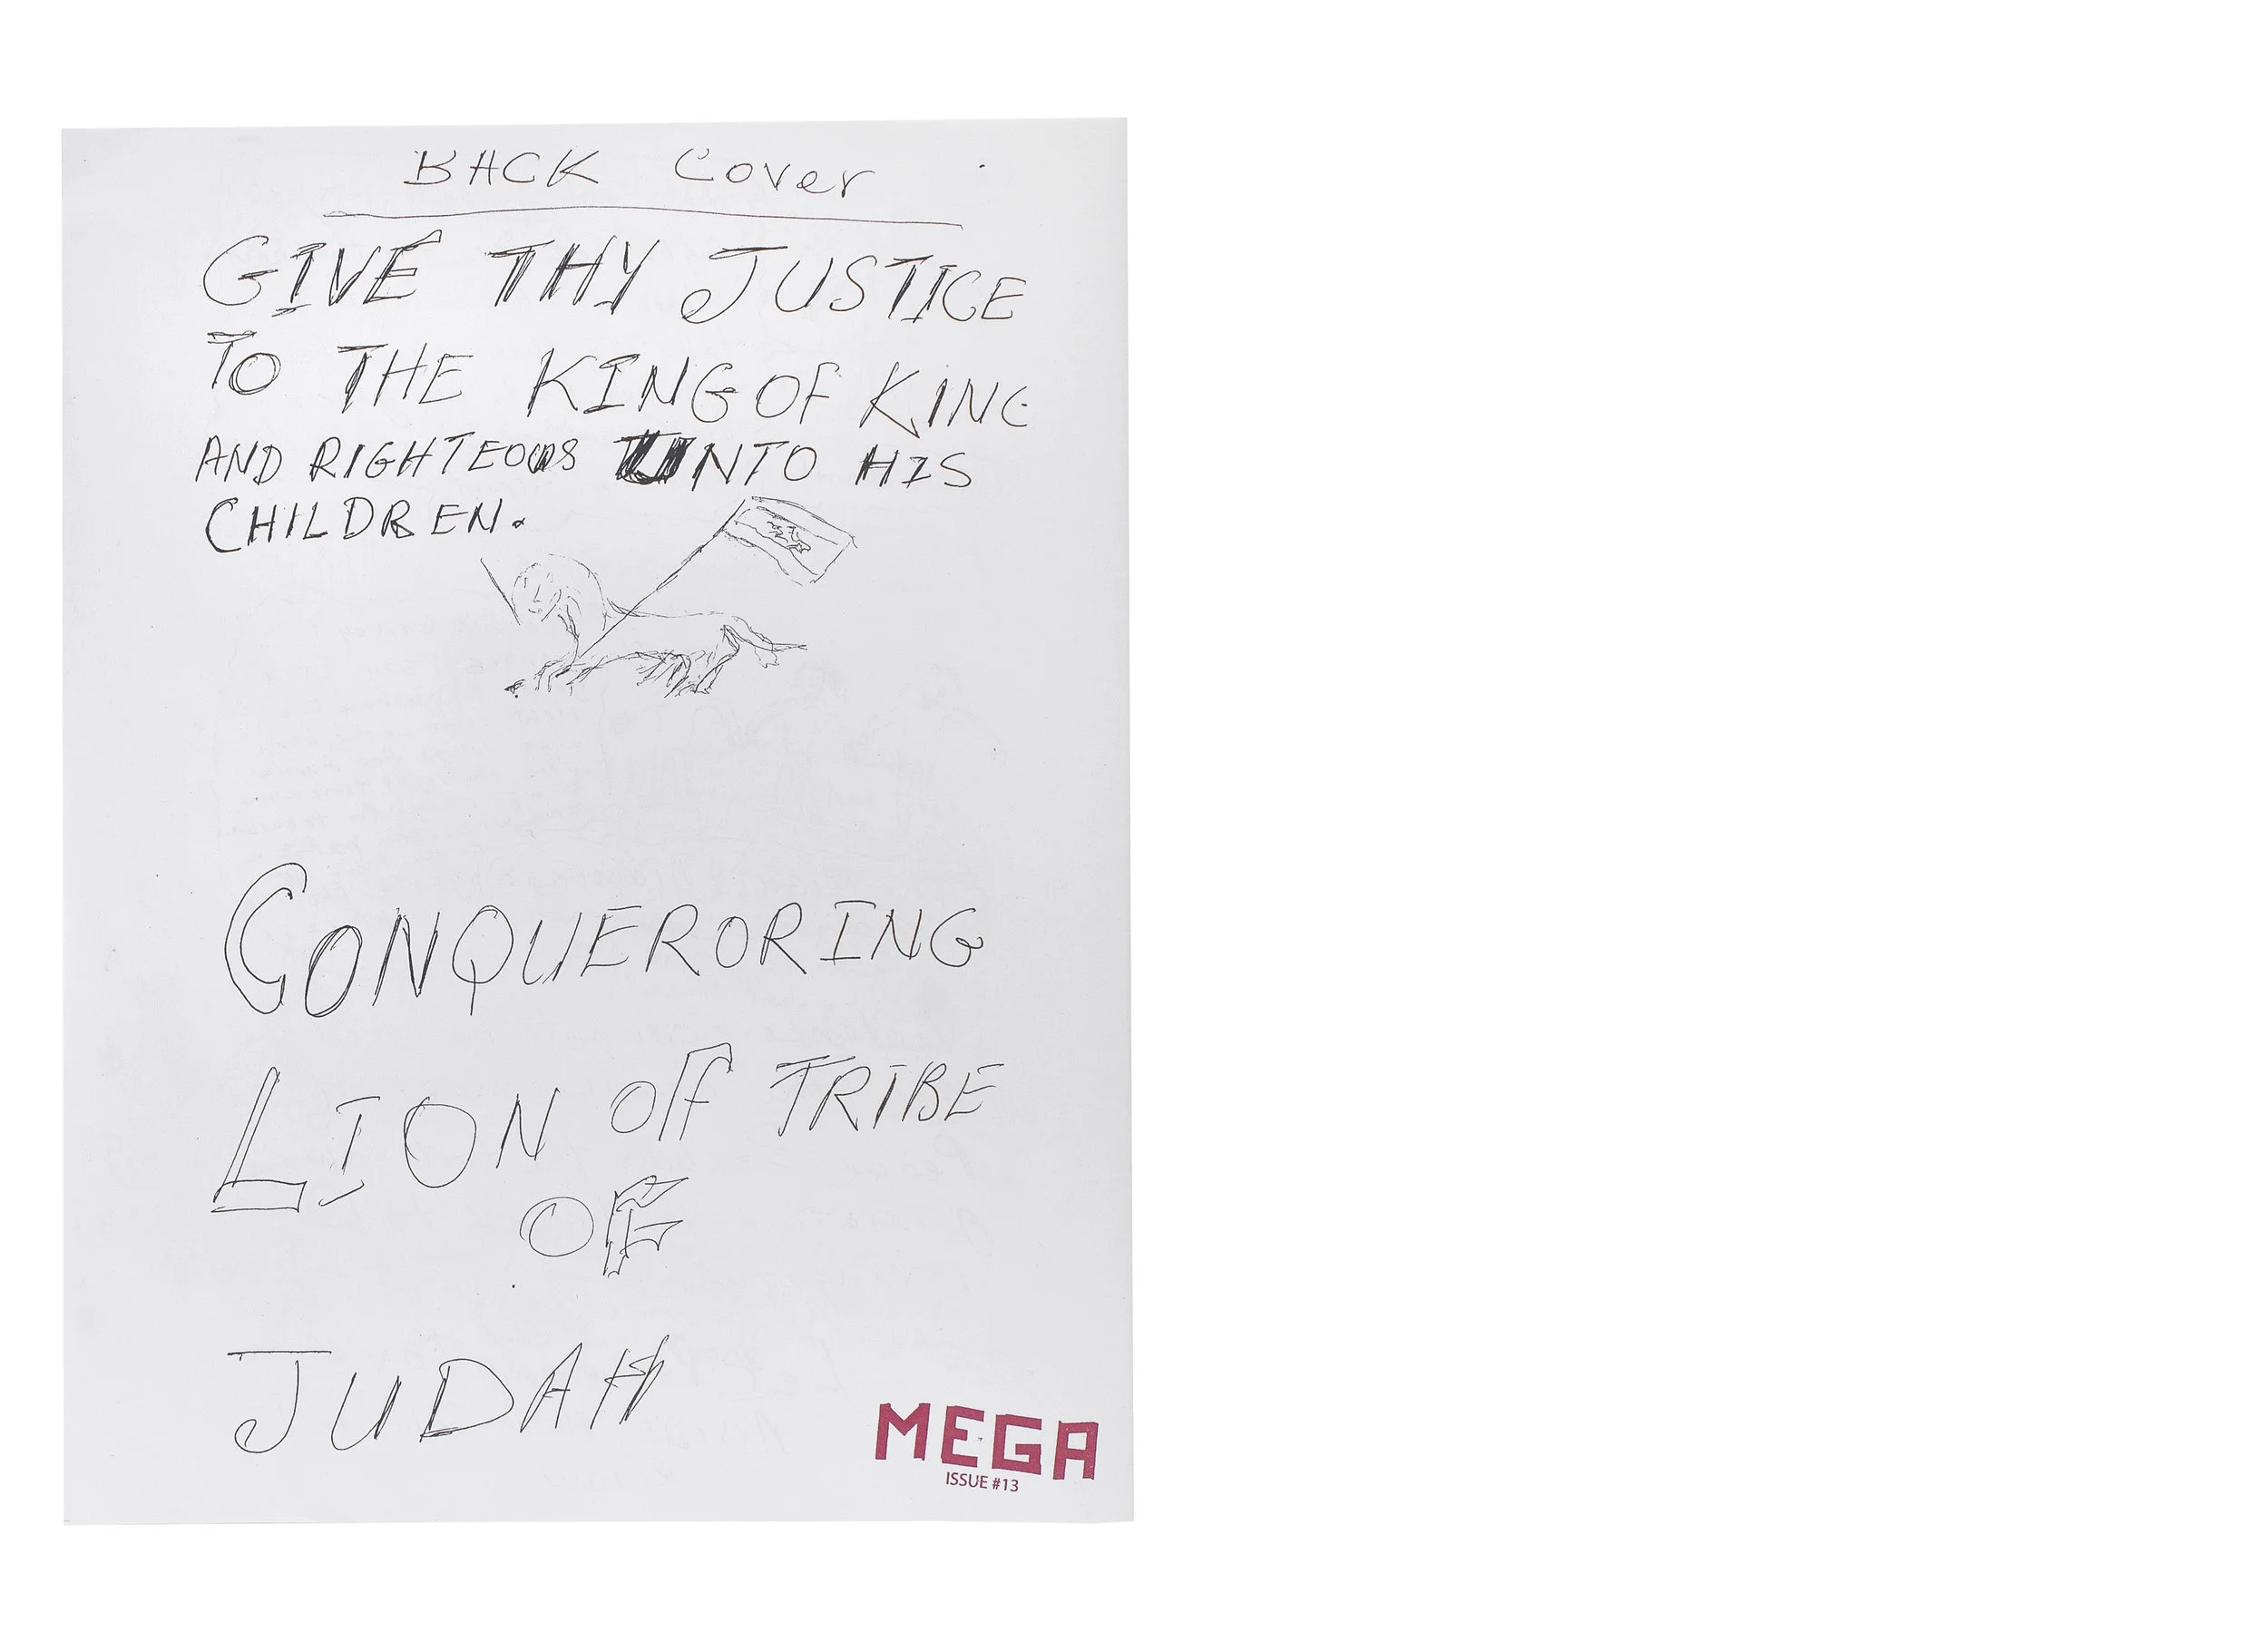 BACK Cover
GIVE THY JUSTICE
TO THE KING OF KING
AND RIGHTEOUS UNTO HIS
CHILDREN.
CONQUERORING
LION OFF TRIBE
OF
JUDAH
MEGA
ISSUE #13